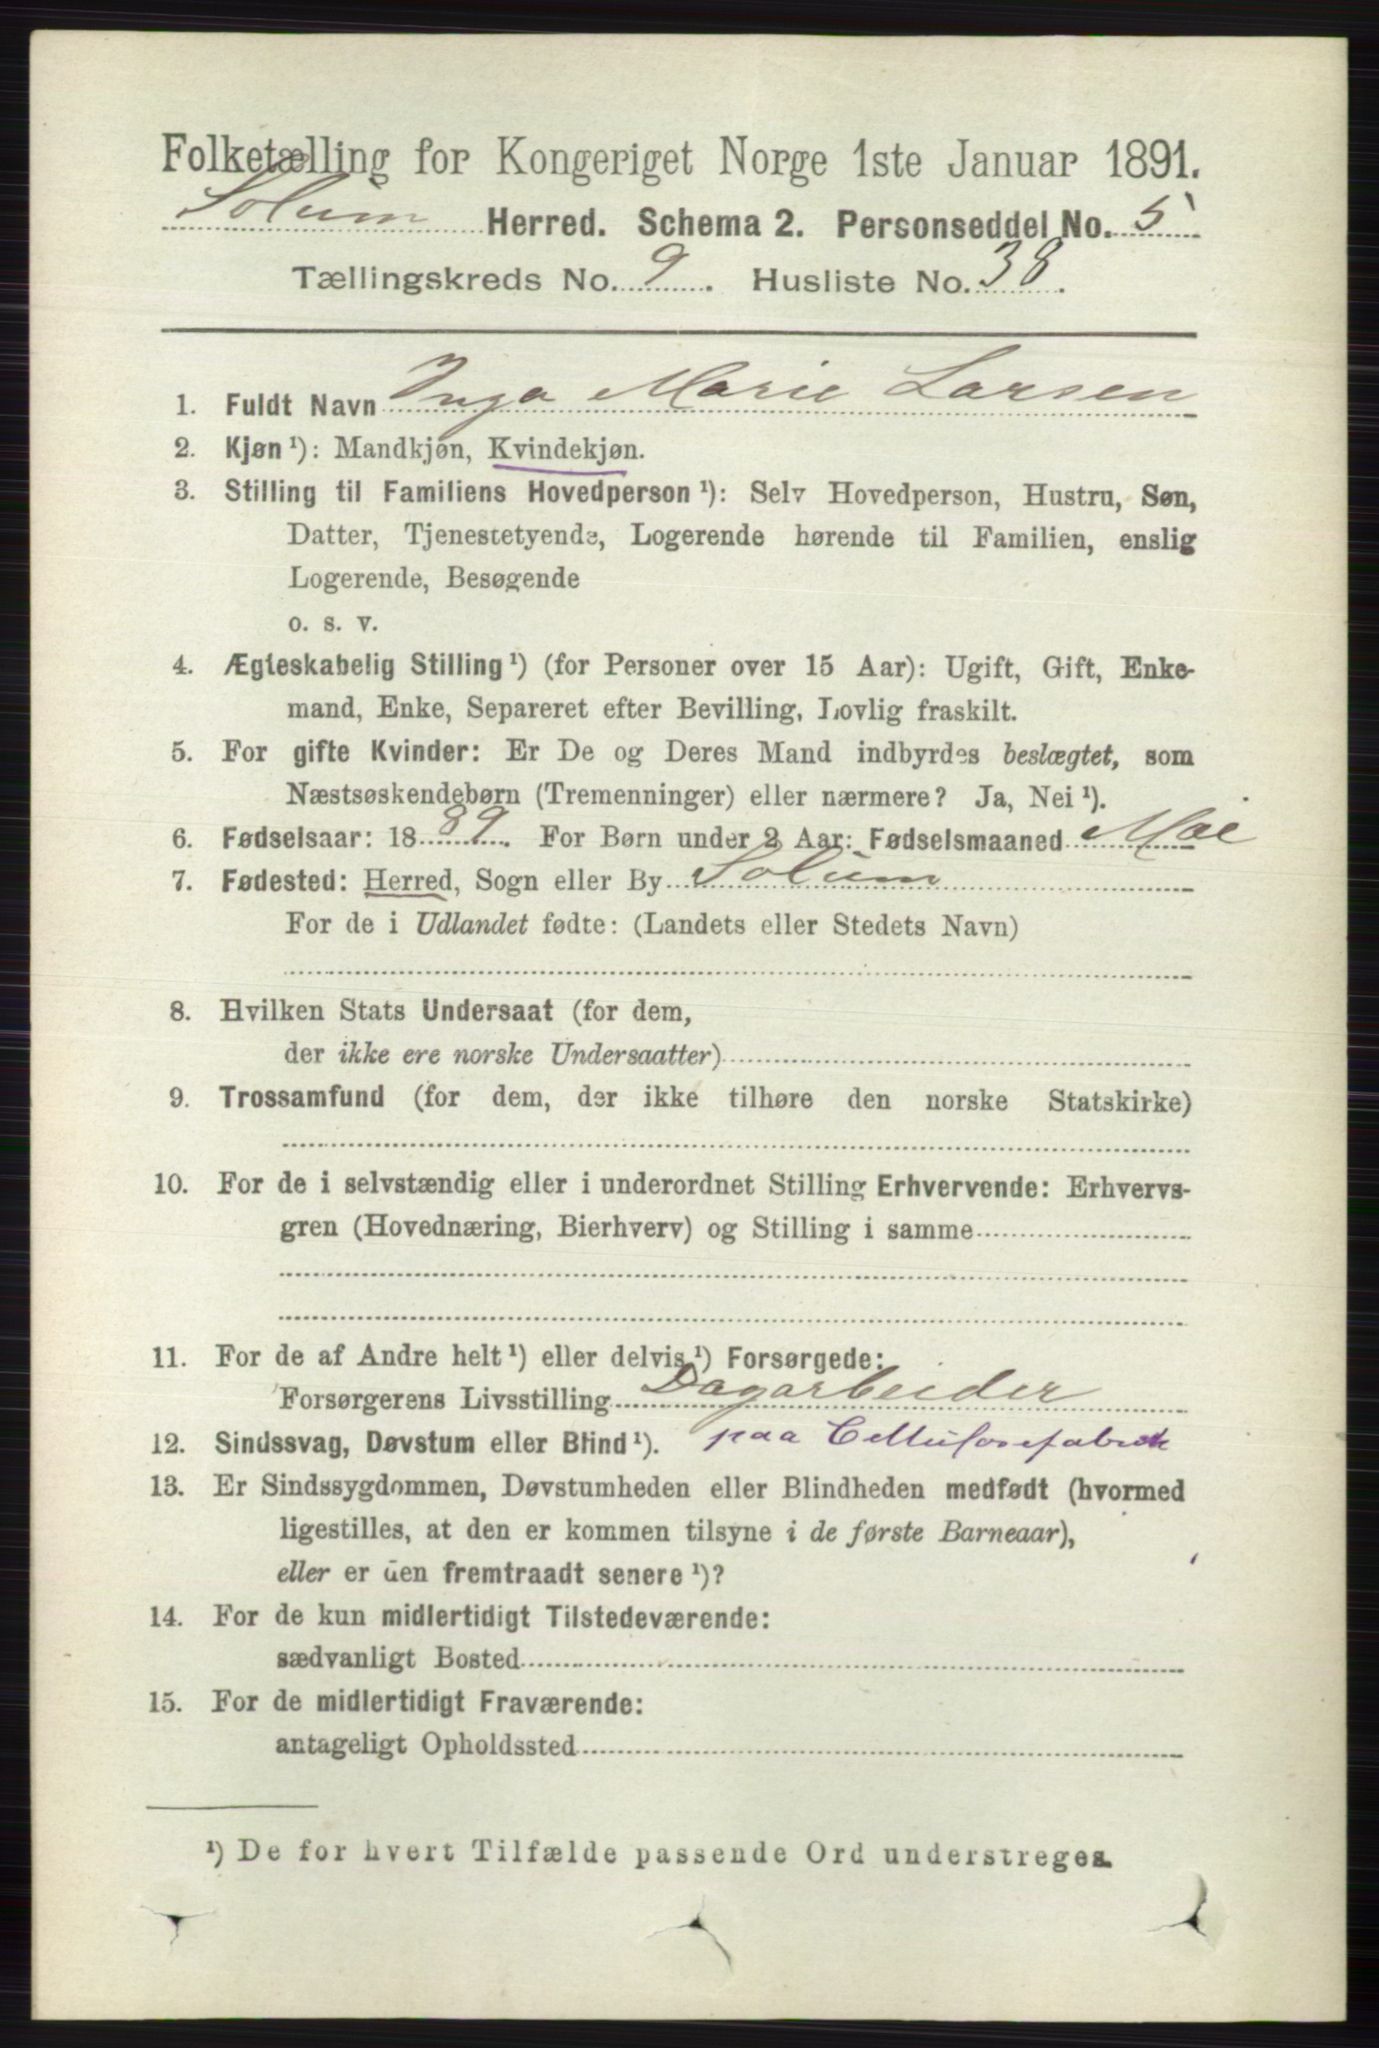 Folketælling for Kongeriget Norge 1ste Januar 1891.
Solum Herred. Schema 2. Personseddel No. 5
Tællingskreds No. 9. Husliste No. 38.
1. Fuldt Navn Inga Marie Larsen
2. Kjøn ¹): Mandkjøn, Kvindekjøn.
3. Stilling til Familiens Hovedperson ¹): Selv Hovedperson, Hustru, Søn,
Datter, Tjenestetyende, Logerende hørende til Familien, enslig
Logerende, Besøgende
o. s. v.
4. Ægteskabelig Stilling ¹) (for Personer over 15 Aar): Ugift, Gift, Enke-
mand, Enke, Separeret efter Bevilling, Lovlig fraskilt.
5. For gifte Kvinder: Er De og Deres Mand indbyrdes beslægtet, som
Næstsøskendebørn (Tremenninger) eller nærmere? Ja, Nei ¹).
6. Fødselsaar: 1889. For Børn under 2 Aar: Fødselsmaaned Mai
7. Fødested: Herred, Sogn eller By Solum
For de i Udlandet fødte: (Landets eller Stedets Navn)
8. Hvilken Stats Undersaat (for dem,
der ikke ere norske Undersaatter)
9. Trossamfund (for dem, der ikke tilhøre den norske Statskirke)
10. For de i selvstændig eller i underordnet Stilling Erhvervende: Erhvervs-
gren (Hovednæring, Bierhverv) og Stilling i samme
11. For de af Andre helt ¹) eller delvis ¹) Forsørgede:
Forsørgerens Livsstilling Dagarbeider
12. Sindssvag, Døvstum eller Blind ¹). paa Cellulosefabrik
13. Er Sindssygdommen, Døvstumheden eller Blindheden medfødt (hvormed
ligestilles, at den er kommen tilsyne i de første Barneaar),
eller er den fremtraadt senere ¹)?
14. For de kun midlertidigt Tilstedeværende:
sædvanligt Bosted
15. For de midlertidigt Fraværende:
antageligt Opholdssted
¹) De for hvert Tilfælde passende Ord understreges.